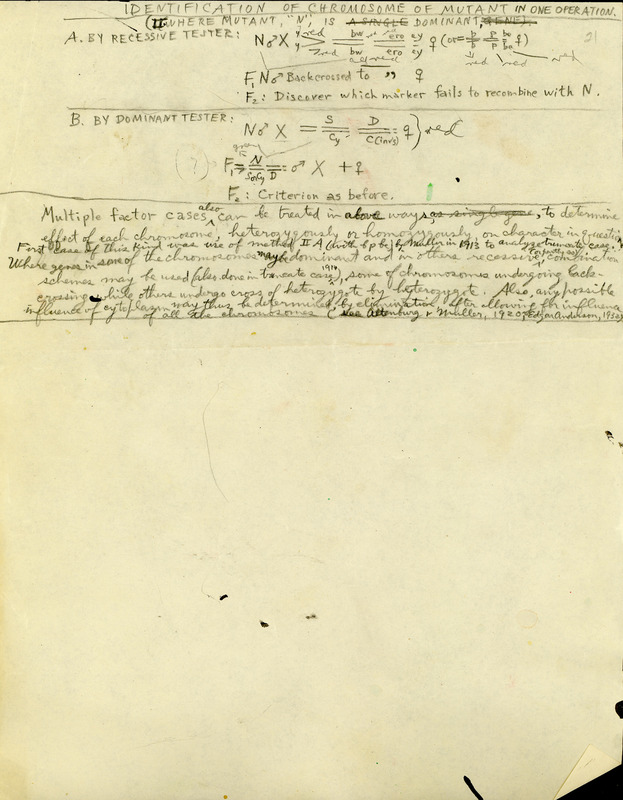 IDENTIFICATION OF CHROMOSOME OF MUTANT IN ONE OPERATION.
(II WHERE MUTANT, "N", IS A SINGLE DOMINANT, GENE).
21
A. BY RECESSIVE TESTER: N♂ X y/y red bw/bw ero ey/ey ♀ (or = p/p p/p be/be ♀)
red red red red
F1 N♂ Backcrossed to " ♀
F2: Discover which marker fails to recombine with N.
B. BY DOMINANT TESTER: N♂ X = S/Cy = D/C(inv3) ♀} red
(7) F1 = N/S or Cy D = ♂ X + ♀
F2: Criterion as before.
Multiple factor cases, also can be treated in above ways as single gene, to determine
effect of each chromosome, heterozygously or homozygously, on character in question.
First case of this kind was use of method II A (with b p be) by Muller in 1913 to analyze truncate case.
Where genes in some of the chromosomes may be dominant and in others recessive, combination
schemes may be used (also done in truncate case, 1914), some of chromosomes undergoing back-
crossing while others undergo cross of heterozygote by heterozygote. Also, any possible
influence of cytoplasm may thus be determined by elimination, after allowing for influence
of all the chromosomes (see Altenburg & Muller, 1920; Edgar Anderson, 1920)